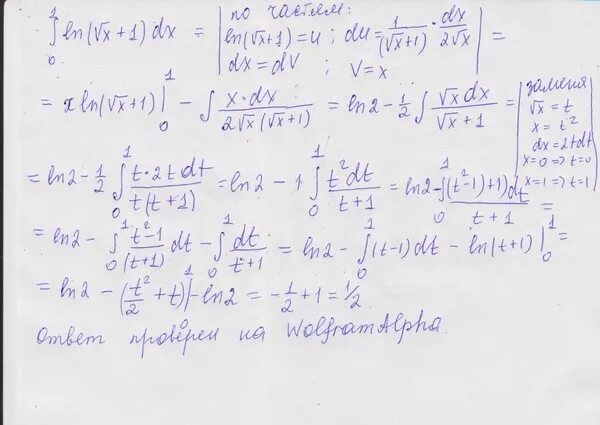 ∫₀¹ ln(√x+1) dx = | по частям: ln(√x+1)=u; du = 1/(√x+1) · dx/2√x; dx=dV; V=x | =
= x ln(√x+1) |₀¹ − ∫ x·dx / 2√x(√x+1) = ln2 − 1/2 ∫ √x dx / √x+1 = | заменя √x=t x=t² dx=2tdt x=0 ⇒ t=0 x=1 ⇒ t=1 |
= ln2 − 1/2 ∫₀¹ t·2t dt / t(t+1) = ln2 − 1 ∫₀¹ t²dt / t+1 = ln2 − ∫₀¹ ((t²−1)+1)dt / t+1 =
= ln2 − ∫₀¹ t²−1 / (t+1) dt − ∫₀¹ dt / t+1 = ln2 − ∫₀¹ (t−1)dt − ln(t+1) |₀¹ =
= ln2 − (t²/2 + t) |₀¹ − ln2 = −1/2 + 1 = 1/2
ответ проверен на WolframAlpha.